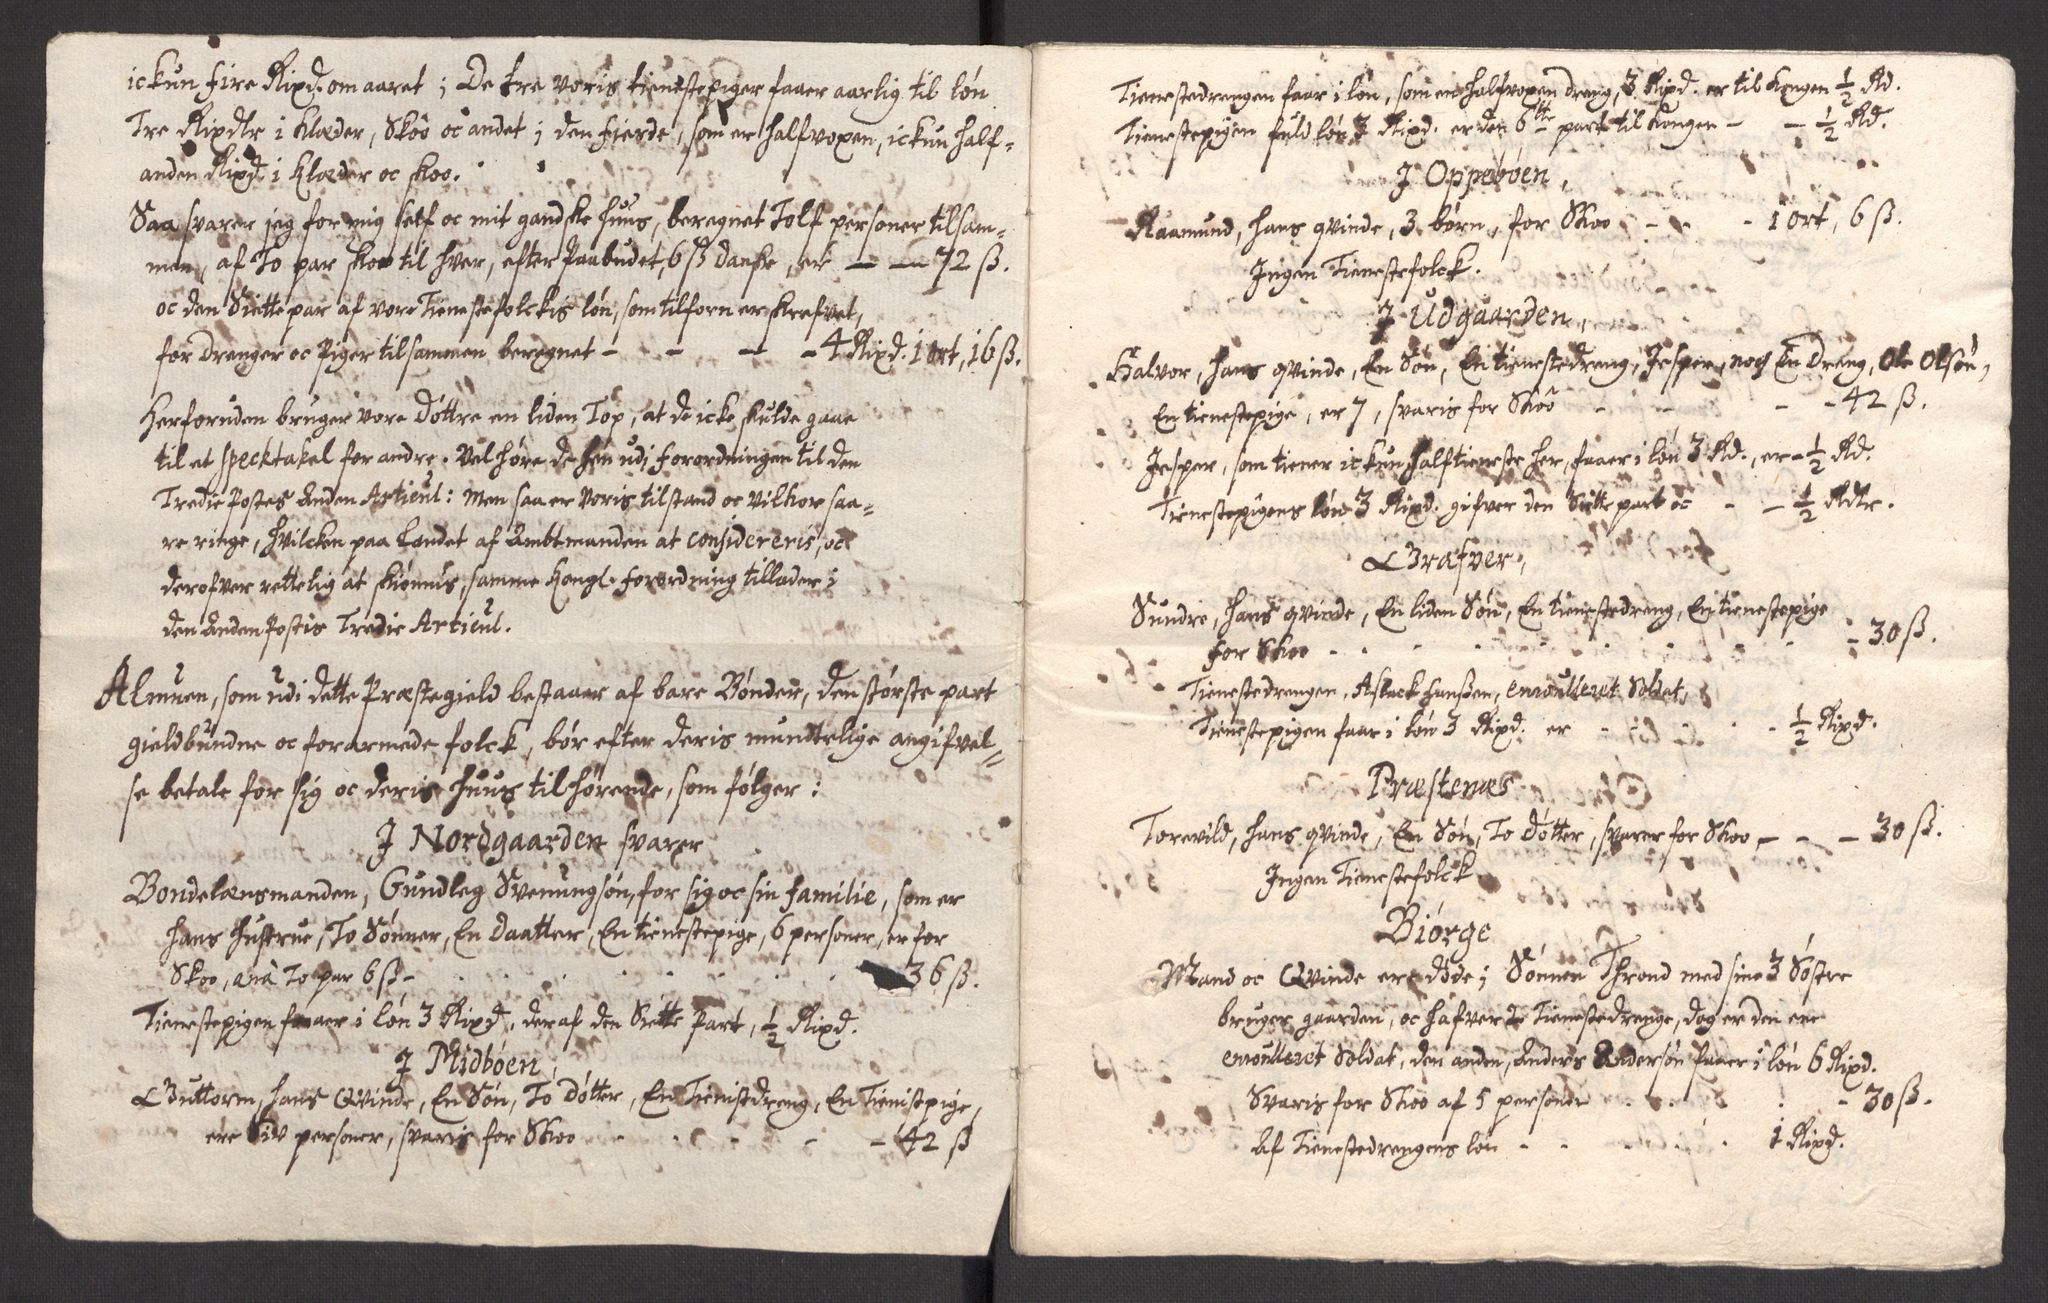 ickun fire Rixd. om aaret; De tre voris tienestepiger faaer aarlig til løn
Tre Rixdlr i Klæder, Skoo oc andet; den fierde, som er halfvoxen, ickun half-
anden Rixd. i Klæder oc skoo.
Saa svarer jeg for mig self oc mit gandske huus, beregnet Tolf personer tilsam-
men, af To par skoo til hver, efter Paabudet, 6 ß danske, er — — 72 ß.
oc den Siette par af vore Tienestefolckis løn, som tilforn er skrefvet,
for drenger oc Piger tilsammen beregnet - - - - 4 Rixd. 1 ort, 16 ß.
Herforuden bruger vore Døttre en liden Top, at de icke skulde gaae
til et specktakel for andre. Vel høre de hen udj forordningen til den
Tredie Postes Anden Articul: Men saa er Voris tilstand oc Vilkor saa-
re ringe, hvilcken paa Landet af Ambtmanden at considereris, oc
derofver rettelig at skiønnis, samme Kongl. forordning tillader i
den Anden Postis Tredie Articul.
Almuen, som udi dette Præstegield bestaaer af bare Bønder, den største part
gieldbundne oc forarmede folck, bør efter deris mundtelige angifvel-
se betale for sig oc deris huus tilhørende, som følger:
J Nordgaarden svarer
Bondelænsmanden, Gundleg Svenungsøn, for sig oc sin familie, som er
hans hustrue, To Sønner, En daatter, En tienestepige, 6 personer, er for
Skoo, ara To par 6 ß - . . . . . 36 ß.
Tienestepigen faaer i løn 3 Rixd., deraf den Siette Part, ½ Rixd.
J Midbøen,
Guttorm, hans Qvinde, En Søn, To døtter, En Tienistdreng, En Tienistpige,
ere Siv personer, svaris for Skoo - - - - - 42 ß
Tienestedrengen faar i løn, som en halfvoxen dreng, 3 Rixd. er til Kongen ½ Rd.
Tienestepigen fuld løn 3 Rixd. er den 6tte part til Kongen - - ½ Rd.
J Oppebøen,
Raamund, hans qvinde, 3 børn, for Skoo - - - 1 ort, 6 ß.
Jngen Tienestefolck.
J Udgaarden,
Halvor, hans qvinde, En Søn, En tienestedreng, Jesper, noch En Dreng, Ole Olsøn,
En tienestepige, er 7, svaris for Skoo - - - - 42 ß.
Jesper, som tiener ickun halftieneste her, faaer i løn 3 Rd., er - ½ Rd.
Tienestepigens løn 3 Rixd. gifver den Siette part oc - - ½ Rdlr.
Græfver,
Sundre, hans qvinde, En liden Søn, En tienestedreng, En tienestepige
for Skoo - . . . . . - 30 ß.
Tienestedrengen, Aslack Hanssøn, enroulleret Soldat,
Tienestepigen faar i løn 3 Rixd. er - - - ½ Rixd.
Præstenæs
Torevild, hans qvinde, En Søn, To døtter, svarer for Skoo - - - 30 ß.
Jngen Tienestefolck
Biørge
Mand oc Qvinde ere døde; Sønnen Thrond med sine 3 Søstre
bruger gaarden, oc hafver 2 Tienestedrenge, dog er den ene
enroulleret Soldat, den anden, Anders Andersøn faaer i løn 6 Rixd.
Svaris for Skoo af 5 personer - - - - 30 ß.
Af Tienestedrengens løn - - - - 1 Rixd.